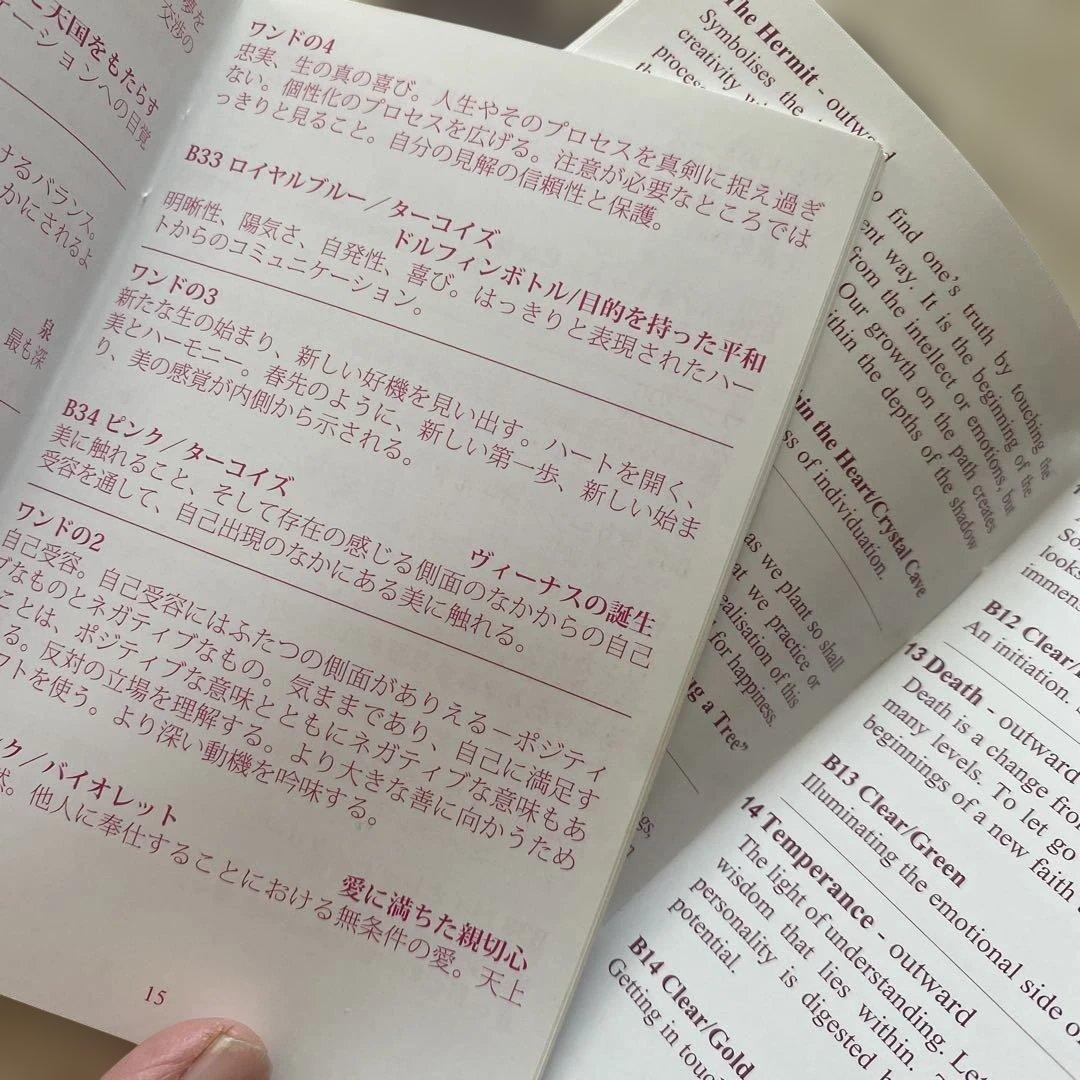 夢を
交渉の
天国をもたらす
ーションへの目覚
するバランス。
かにされるよ
泉
最も深
ワンドの4
忠実、生の真の喜び。人生やそのプロセスを真剣に捉え過ぎ
ない。個性化のプロセスを広げる。注意が必要なところでは
っきりと見ること。自分の見解の信頼性と保護。
B33 ロイヤルブルー／ターコイズ
ドルフィンボトル/目的を持った平和
明晰性、陽気さ、自発性、喜び。はっきりと表現されたハー
トからのコミュニケーション。
ワンドの3
新たな生の始まり、新しい好機を見い出す。ハートを開く、
美とハーモニー。春先のように、新しい第一歩、新しい始ま
り、美の感覚が内側から示される。
B34 ピンク／ターコイズ
ヴィーナスの誕生
美に触れること、そして存在の感じる側面のなかからの自己
受容を通して、自己出現のなかにある美に触れる。
ワンドの2
自己受容。自己受容にはふたつの側面がありえる－ポジティ
ブなものとネガティブなもの。気ままであり、自己に満足す
ことは、ポジティブな意味とともにネガティブな意味もあ
る。反対の立場を理解する。より大きな善に向かうため
フトを使う。より深い動機を吟味する。
ク／バイオレット
愛に満ちた親切心
然。他人に奉仕することにおける無条件の愛。天上
15
The Hermit - outw
Symbolises the i
creativity
process
find one's truth by touching the
ent way. It is the beginning of the
from the intellect or emotions, but
Our growth on the path creates
within the depths of the shadow
in the Heart/Crystal Cave
ss of individuation.
as we plant so shall
at we practice or
ealisation of this
for happiness.
g a Tree"
gs,
So
looks
immens
B12 Clear/
An initiation.
13 Death - outward
Death is a change from
many levels. To let go
beginnings of a new faith
B13 Clear/Green
Illuminating the emotional side o
14 Temperance - outward
The light of understanding. Let
wisdom that lies within. T
personality is digested b
potential.
B14 Clear/Gold
Getting in touc